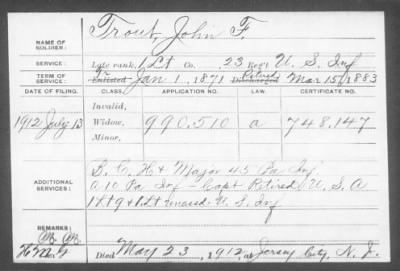 NAME OF SOLDIER: Trout, John F.
SERVICE: Late rank, 1 Lt Co. 23 Reg't U. S. Inf
TERM OF SERVICE: Enlisted Jan 1, 1871 Discharged Retired Mar 15, 1883
DATE OF FILING. CLASS. APPLICATION NO. LAW. CERTIFICATE NO.
Invalid,
1912 July 13 Widow, 990.510 a 748.147
Minor,
ADDITIONAL SERVICES: B. C. H & Major 45 Pa Inf
a 10 Pa Inf - Capt Retired U. S. A
1 Lt 9 & 1 Lt U. S. Inf
REMARKS:
Died May 23, 1912, at Jersey City, N. J.